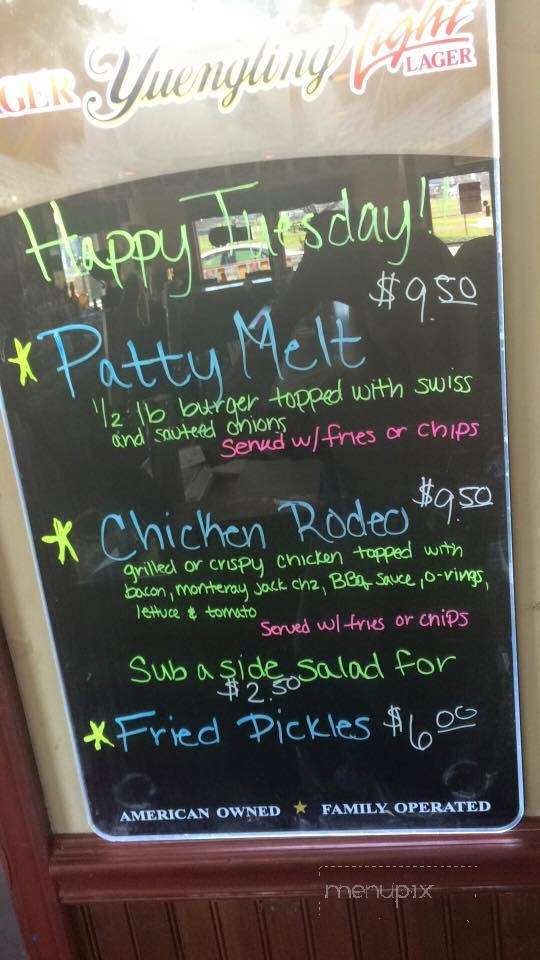 GER Yuengling Light
LAGER
Happy Tuesday!
$9.50
Patty Melt
1/2 lb burger topped with swiss
and sauteed onions
Served w/ fries or chips
$9.50
Chicken Rodeo
grilled or crispy chicken topped with
bacon, monteray jack chz, BBq sauce, o-rings,
lettuce & tomato
Served w/ fries or chips
Sub a side salad for
$2.50
Fried Pickles $6.00
AMERICAN OWNED ★ FAMILY OPERATED
menupix